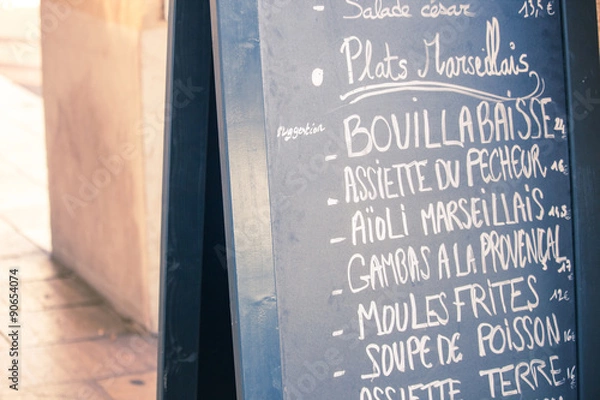 Salade césar 13,5€
Plats Marseillais
suggestion
BOUILLABAISSE 24
- ASSIETTE DU PECHEUR 16
- AÏOLI MARSEILLAIS
- GAMBAS A LA PROVENÇAL 17
- MOULES FRITES 12€
- SOUPE DE POISSON
- ASSIETTE TERRE
Adobe Stock | #90654074